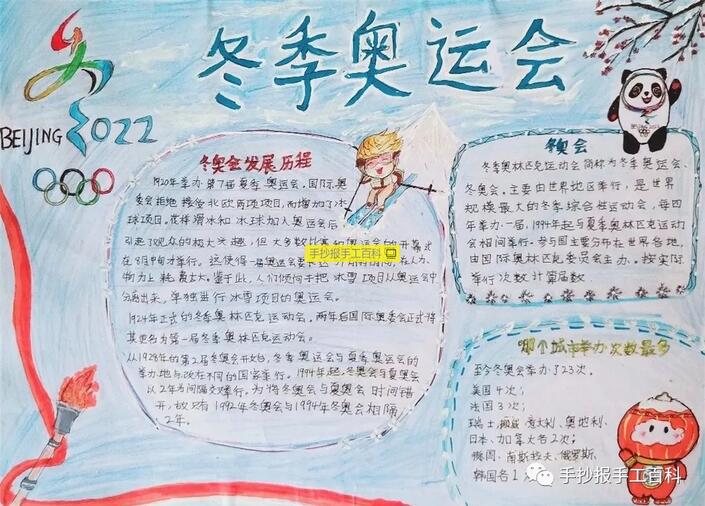 冬季奥运会
BEIJING 2022
冬奥会发展历程
1920年举办第7届夏季奥运会,国际奥
委会拒绝接受北欧两项项目,而增加了冰
球项目,花样滑冰和冰球加入奥运会后
引起了观众的极大兴趣,但大多数比赛
在8月中旬才举行。这使得一届奥运会
物力上耗费太大。鉴于此,人们倾向于把冰雪项目从奥运会中
分离出来,单独进行冰雪项目的奥运会。
1924年正式的冬季奥林匹克运动会。两年后国际奥委会正式将
其更名为第一届冬季奥林匹克运动会。
从1928年的第2届冬奥会开始,冬季奥运会与夏季奥运会的
举办地与改在不同的国家举行。1994年起,冬奥会与夏奥会
以2年为间隔交叉举行。为将冬奥会与夏奥会时间错
开,故只有1992年冬奥会与1994年冬奥会相隔
2年。
手抄报手工百科
冬奥会
冬季奥林匹克运动会简称为冬季奥运会、
冬奥会。主要由世界地区举行,是世界
规模最大的冬季综合性运动会,每四
年举办一届,1994年起与夏季奥林匹克运动
会相间举行。参与国主要分布在世界各地,
由国际奥林匹克委员会主办。按实际
举行次数计算届数
哪个城市举办次数最多
至今冬奥会举办了23次。
美国4次;
法国3次;
瑞士,挪威,意大利、奥地利、
日本、加拿大各2次;
德国、南斯拉夫、俄罗斯、
韩国各1次
手抄报手工百科